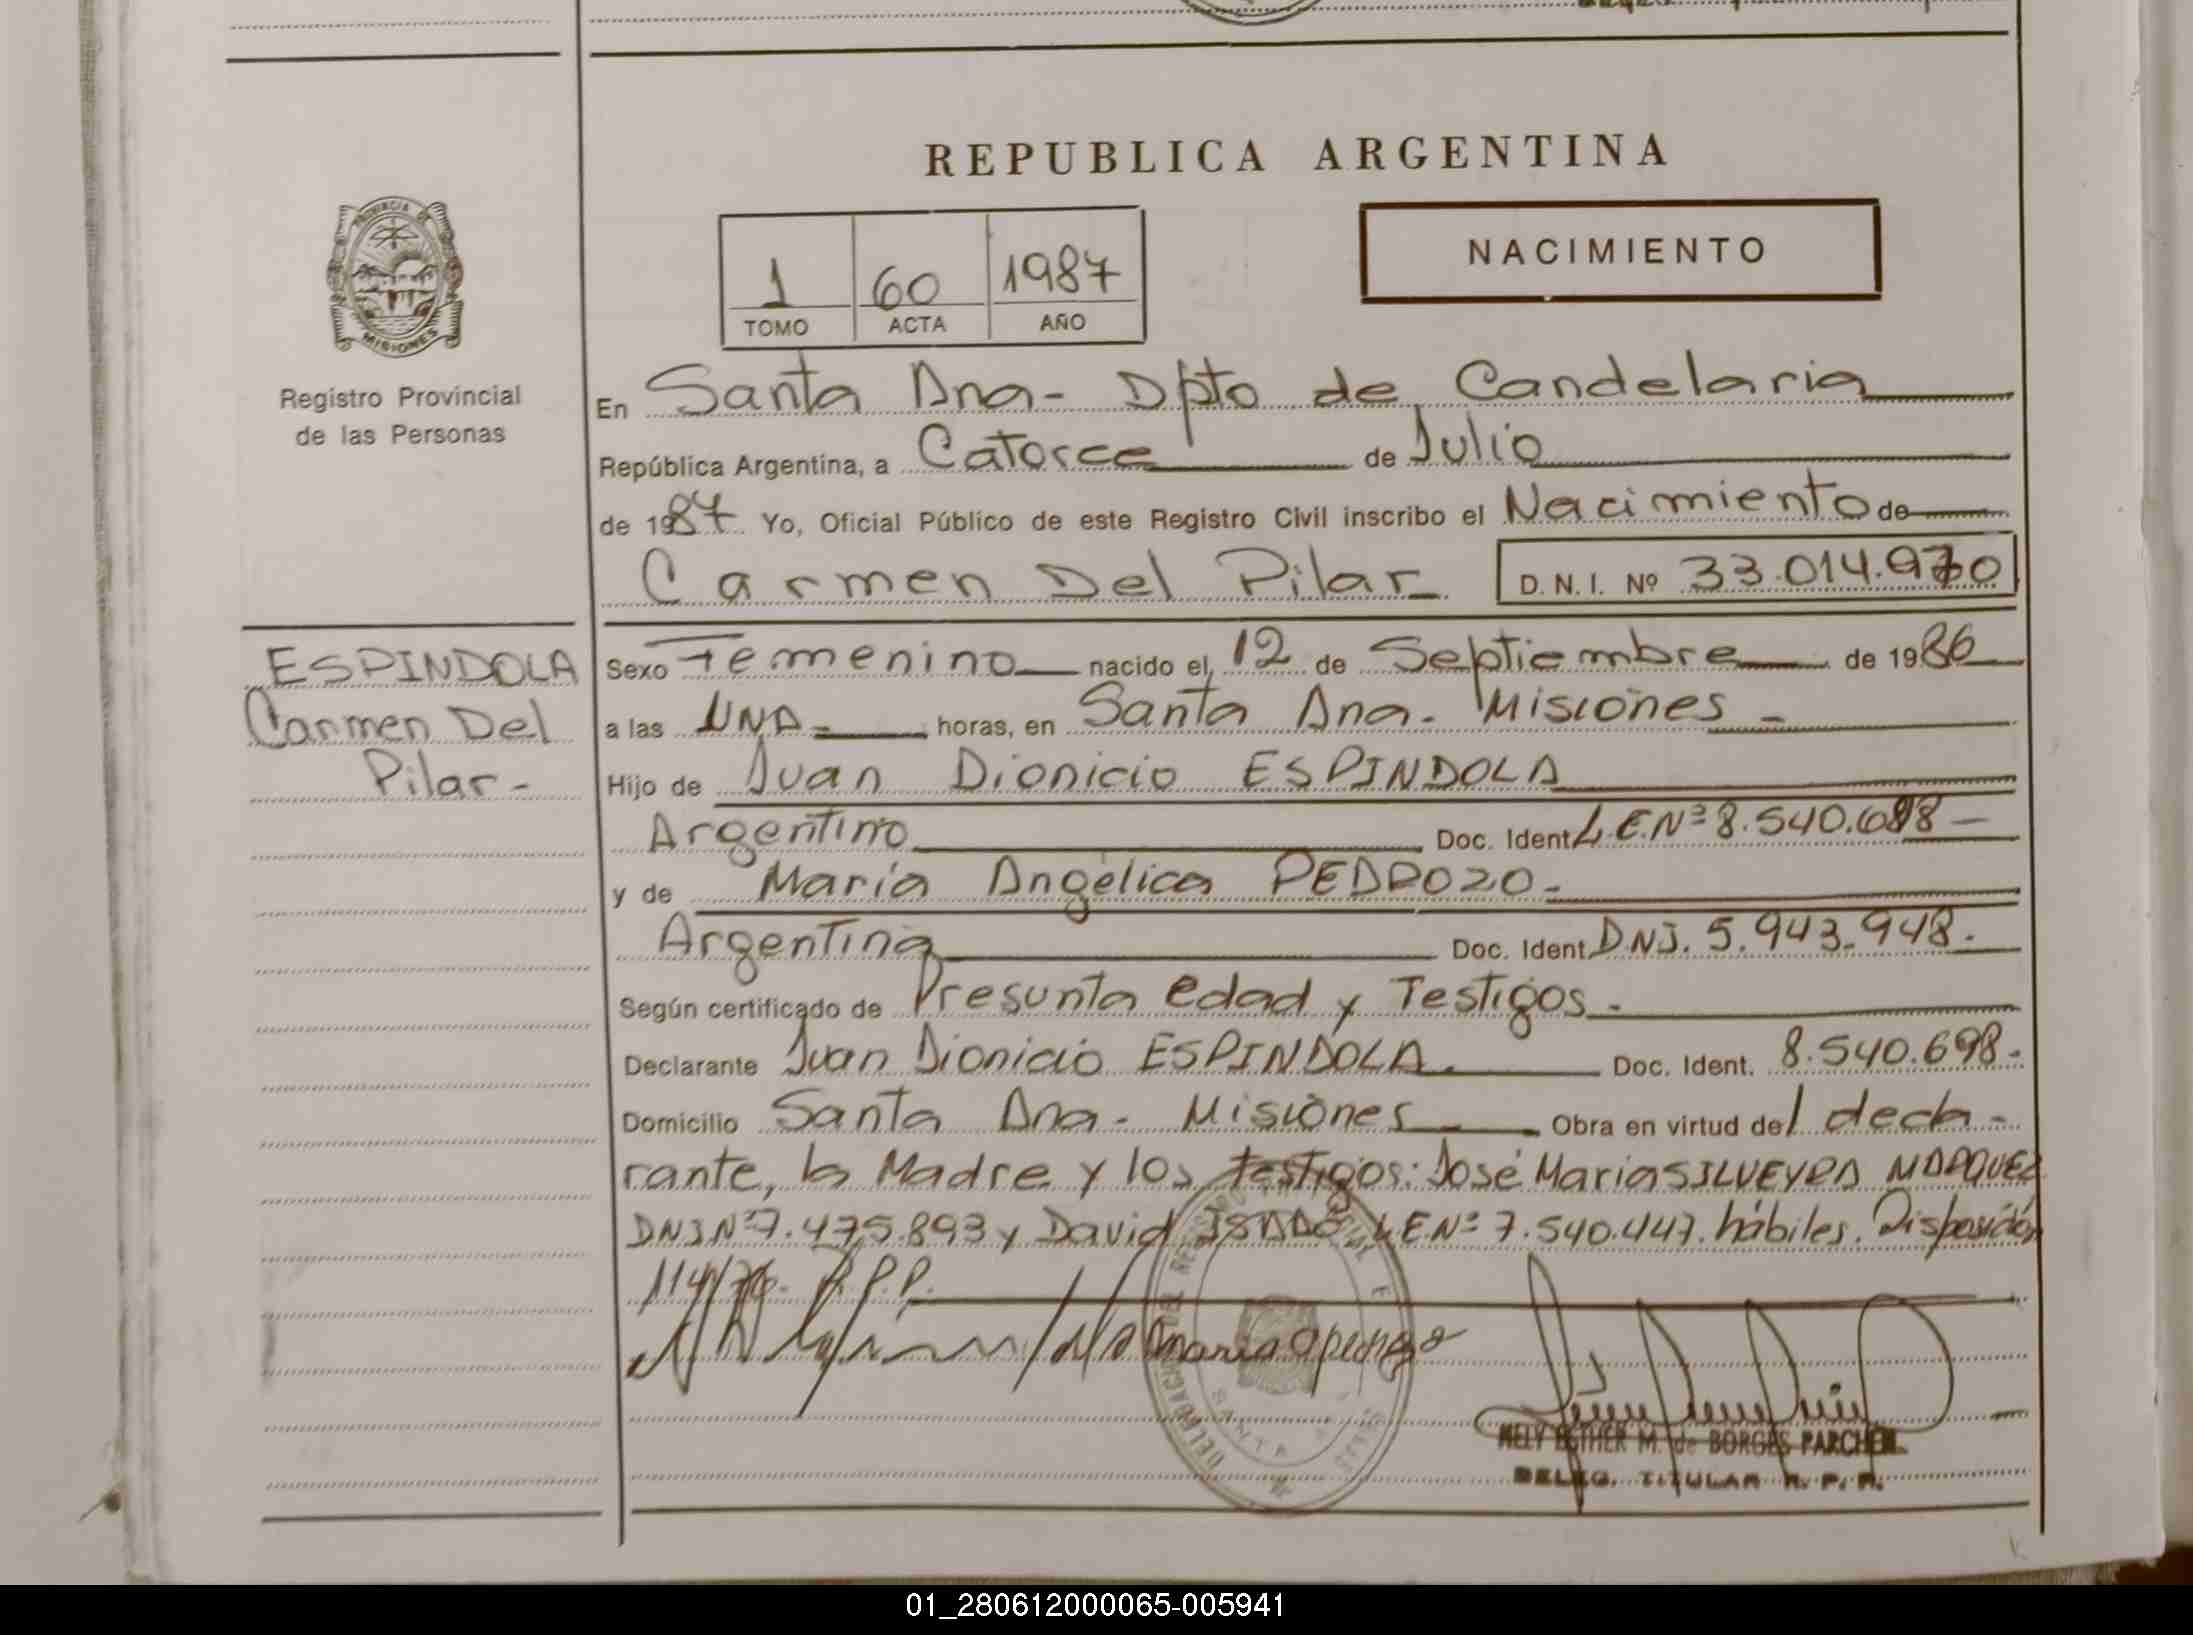 REPUBLICA ARGENTINA
PROVINCIA DE
MISIONES
Registro Provincial
de las Personas
1 60 1987
TOMO ACTA AÑO
NACIMIENTO
En Santa Ana - Dpto de Candelaria
República Argentina, a Catorce de Julio
de 1987 Yo, Oficial Público de este Registro Civil inscribo el Nacimiento de
Carmen Del Pilar D. N. I. Nº 33.014.970
ESPINDOLA
Carmen Del
Pilar -
Sexo Femenino nacido el, 12 de Septiembre de 1986
a las UNA - horas, en Santa Ana - Misiones -
Hijo de Juan Dionicio ESPINDOLA
Argentino Doc. Ident L.E.Nº 8.540.698 -
y de María Angélica PEDROZO -
Argentina Doc. Ident. DNI. 5.943.948.
Según certificado de Presunta edad y Testigos -
Declarante Juan Dionicio ESPINDOLA. Doc. Ident. 8.540.698.
Domicilio Santa Ana - Misiones Obra en virtud del decla -
rante, la Madre y los testigos: José María SILVEYRA MARQUEZ
DNI Nº 7.475.893 y David LE Nº 7.540.447. hábiles. Disposición
114/76. R.P.P.
SANTA
NELY ESTHER M. de BORGES PARCHEN
DELEG. TITULAR R. P. P.
01_280612000065-005941